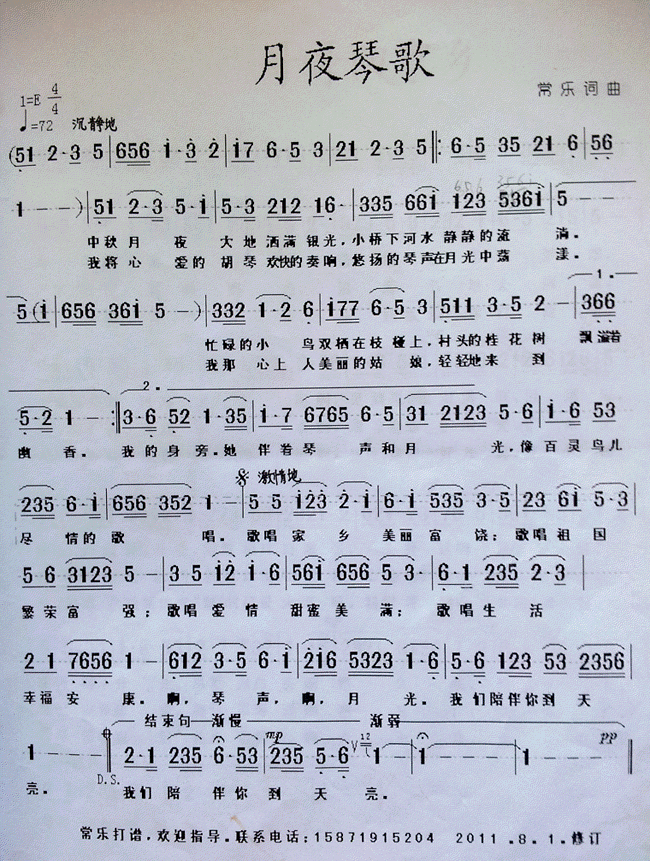 月夜琴歌
常乐词曲
1=E 4/4
♩=72 沉静地
(51 2·3 5 | 656 1·3 2 | 17 6·5 3 | 21 2·3 5 ‖: 6·5 35 21 6 | 56
1 - - ) | 51 2·3 5·1 | 5·3 212 16· | 335 661 123 5361 | 5 - -
中秋月 夜 大地洒满银光,小桥下河水静静的流 淌。
我将心 爱的 胡琴欢快的奏响,悠扬的琴声在月光中荡 漾。
5 (1 | 656 361 5 - - ) | 332 1·2 6 | 177 6·5 3·5 | 511 3·5 2 - | 366
1.
忙碌的小 鸟双栖在枝 上,村头的桂花树 飘溢着
我那 心上人美丽的姑 娘,轻轻地来 到
2.
5·2 1 - :‖ 3·6 52 1·35 | 1·7 6765 6·5 | 31 2123 5·6 | 1·6 53
幽 香。 我的身旁。她 伴着琴 声和月 光,像百灵鸟儿
𝄋 激情地
235 6·1 | 656 352 | 1 - - | 5 5 123 2·1 | 6·5 356 5 - | 23 61 5·3
尽 情的歌 唱。歌唱家 乡 美丽富 饶;歌唱祖 国
5 6 3123 | 5 - - | 3 5 12 1·6 | 561 656 5·3 | 6·1 235 2·3
繁荣富 强;歌唱爱情 甜蜜美 满;歌唱生 活
2 1 7656 | 1 - - | 612 3·5 61 | 216 5323 1·6 | 5·6 123 53 2356
幸福安 康。啊,琴 声,啊,月 光。我们陪伴你到天
结束句—渐慢 渐弱
1 - - | 2·1 235 6·53 | 235 5·6 | 1 - - | 1 - - | 1 - - ‖
mp
12
pp
D.S.
亮。 我们陪 伴你 到天亮。
常乐打谱,欢迎指导。联系电话:15871915204 2011 .8.1.修订